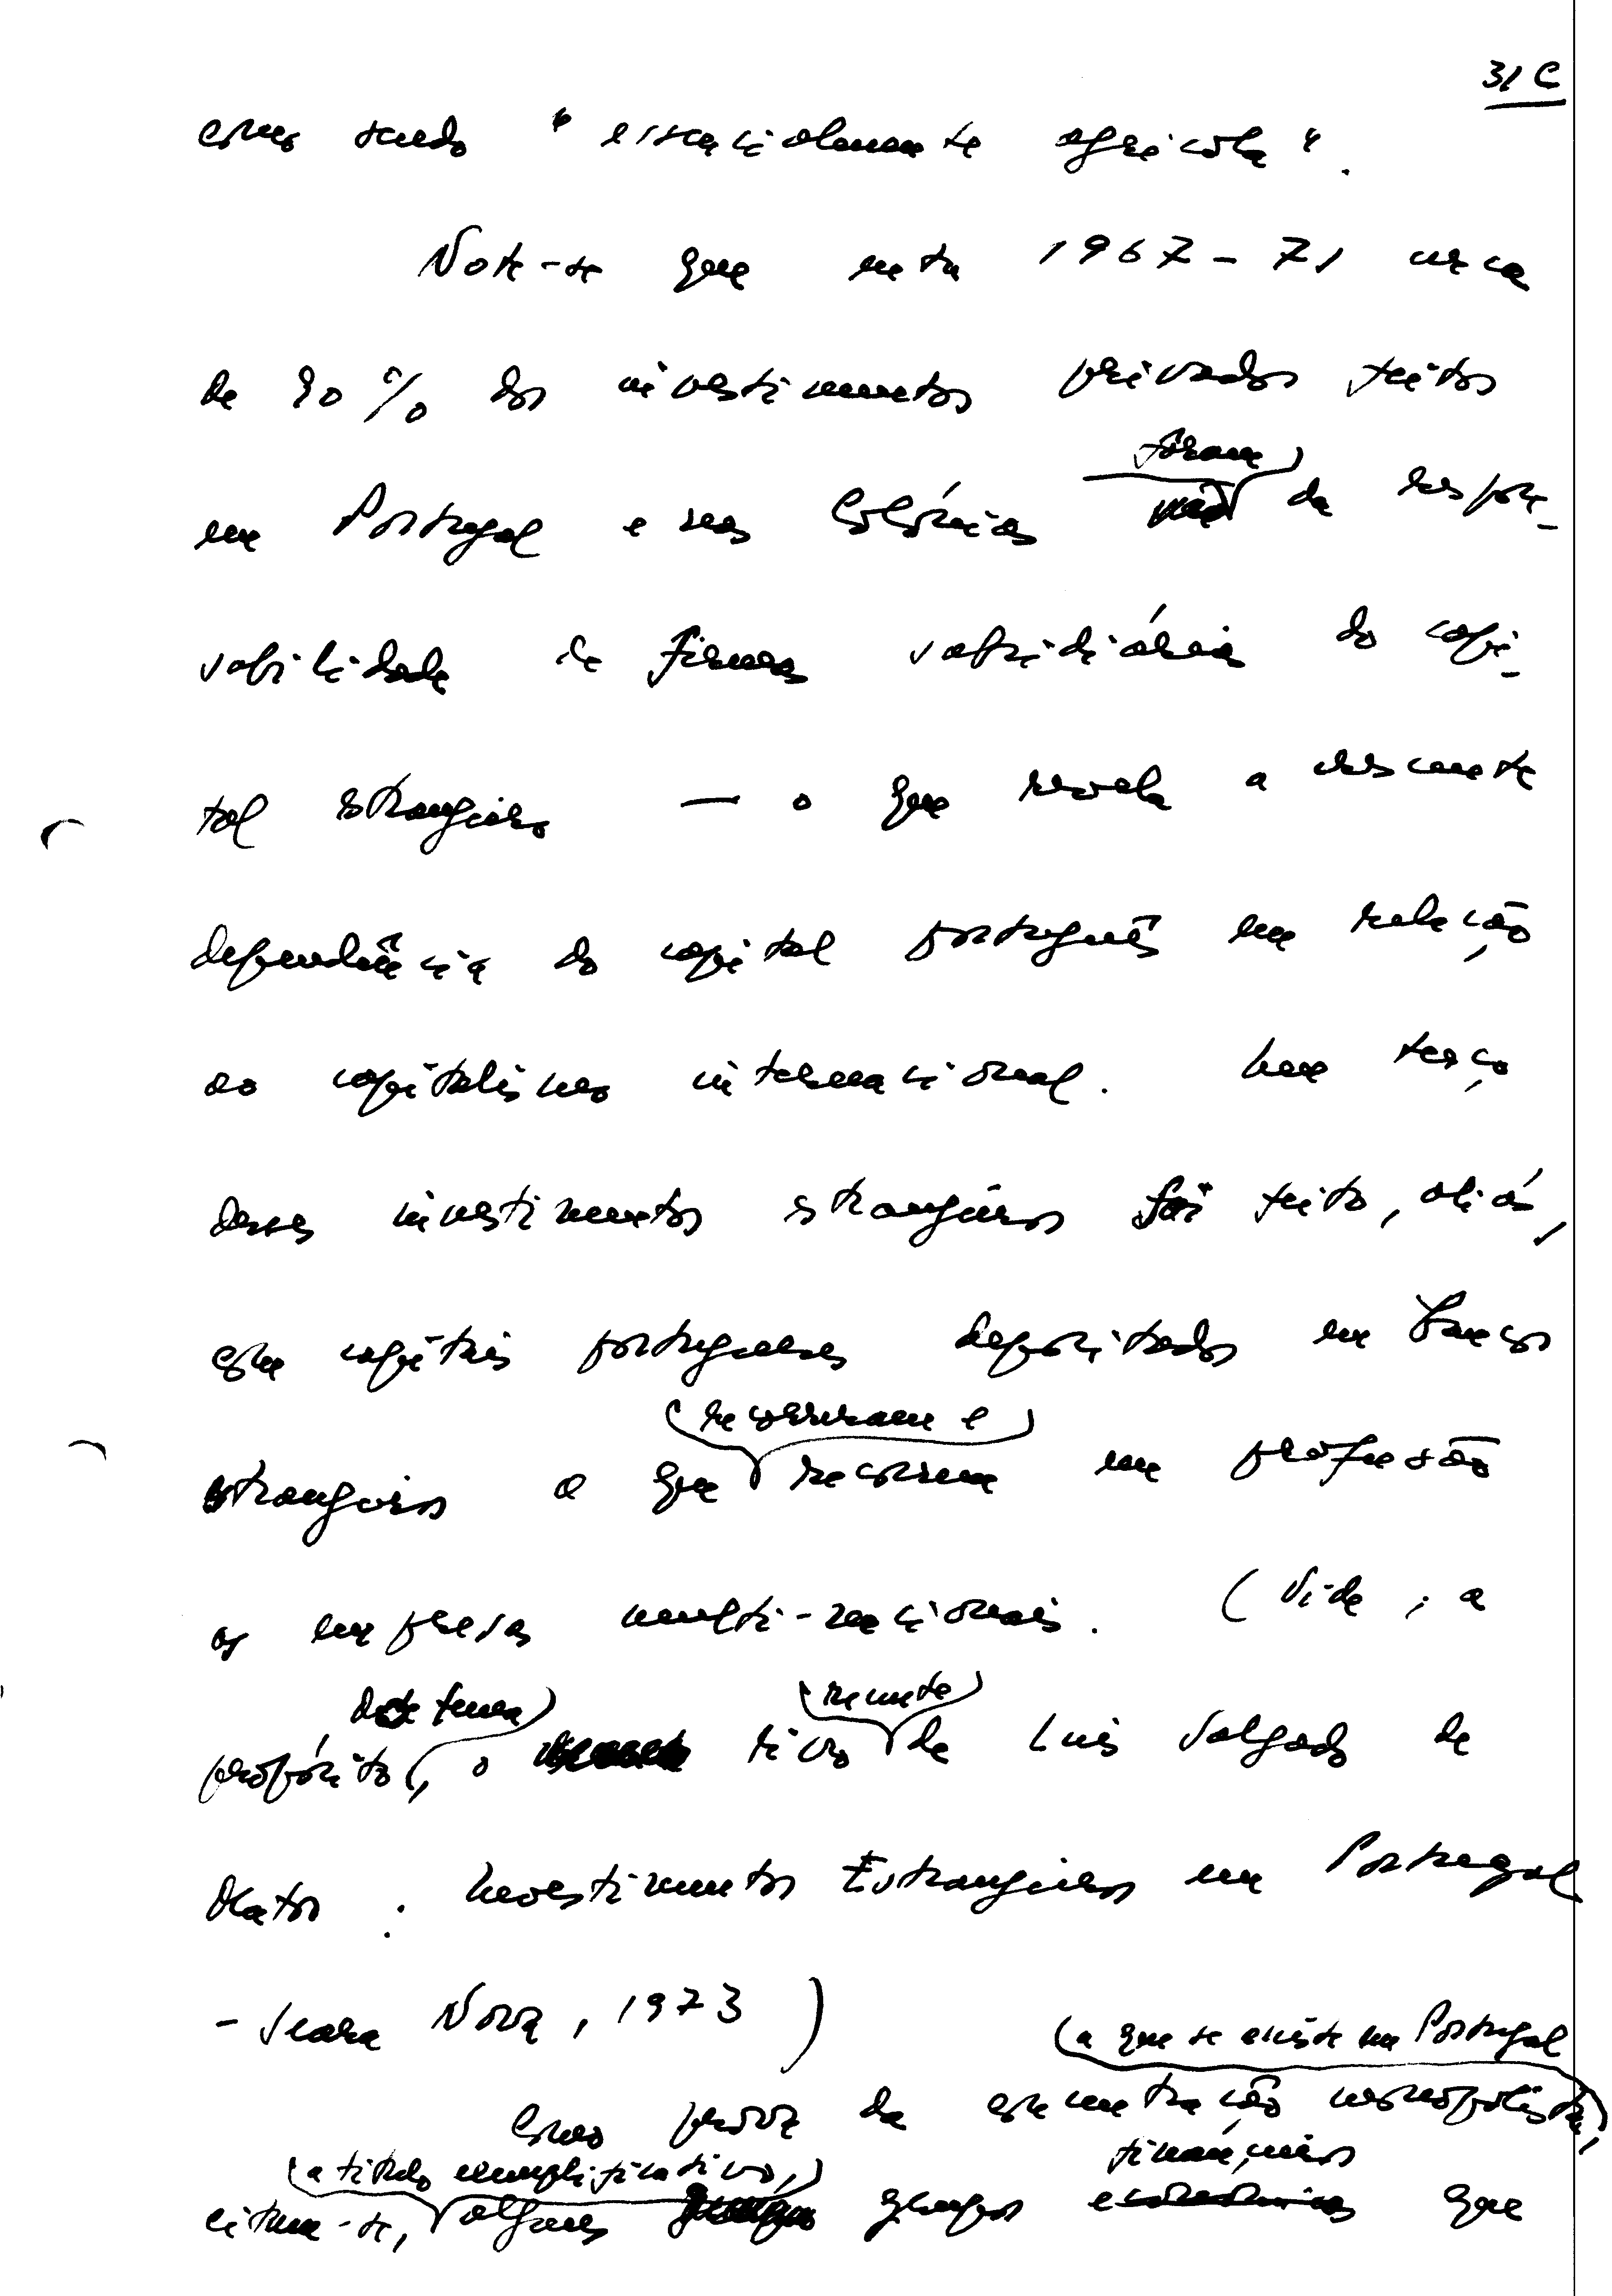 31 C
como sendo "essencialmente agrícola".
Note-se que entre 1967-71 cerca
de 90% dos investimentos privados feitos
foram
em Portugal e nas Colónias da respon-
sabilidade de firmas subsidiárias do capi-
tal estrangeiro — o que revela a crescente
dependência do capital português em relação
ao capitalismo internacional. Um terço
desses investimentos estrangeiros foi feito, aliás,
com capitais portugueses depositados em Bancos
(recorreram e)
estrangeiros a que recorrem em profusão
as empresas multi-nacionais. (Vide, a
(recente)
propósito, o livro de Luís Salgado de
Matos: Investimentos Estrangeiros em Portugal
- Seara Nova, 1973)
(a que se assiste em Portugal)
Como prova da concentração monopolista,
(a título exemplificativo,) financeiros
citam-se, alguns grupos que